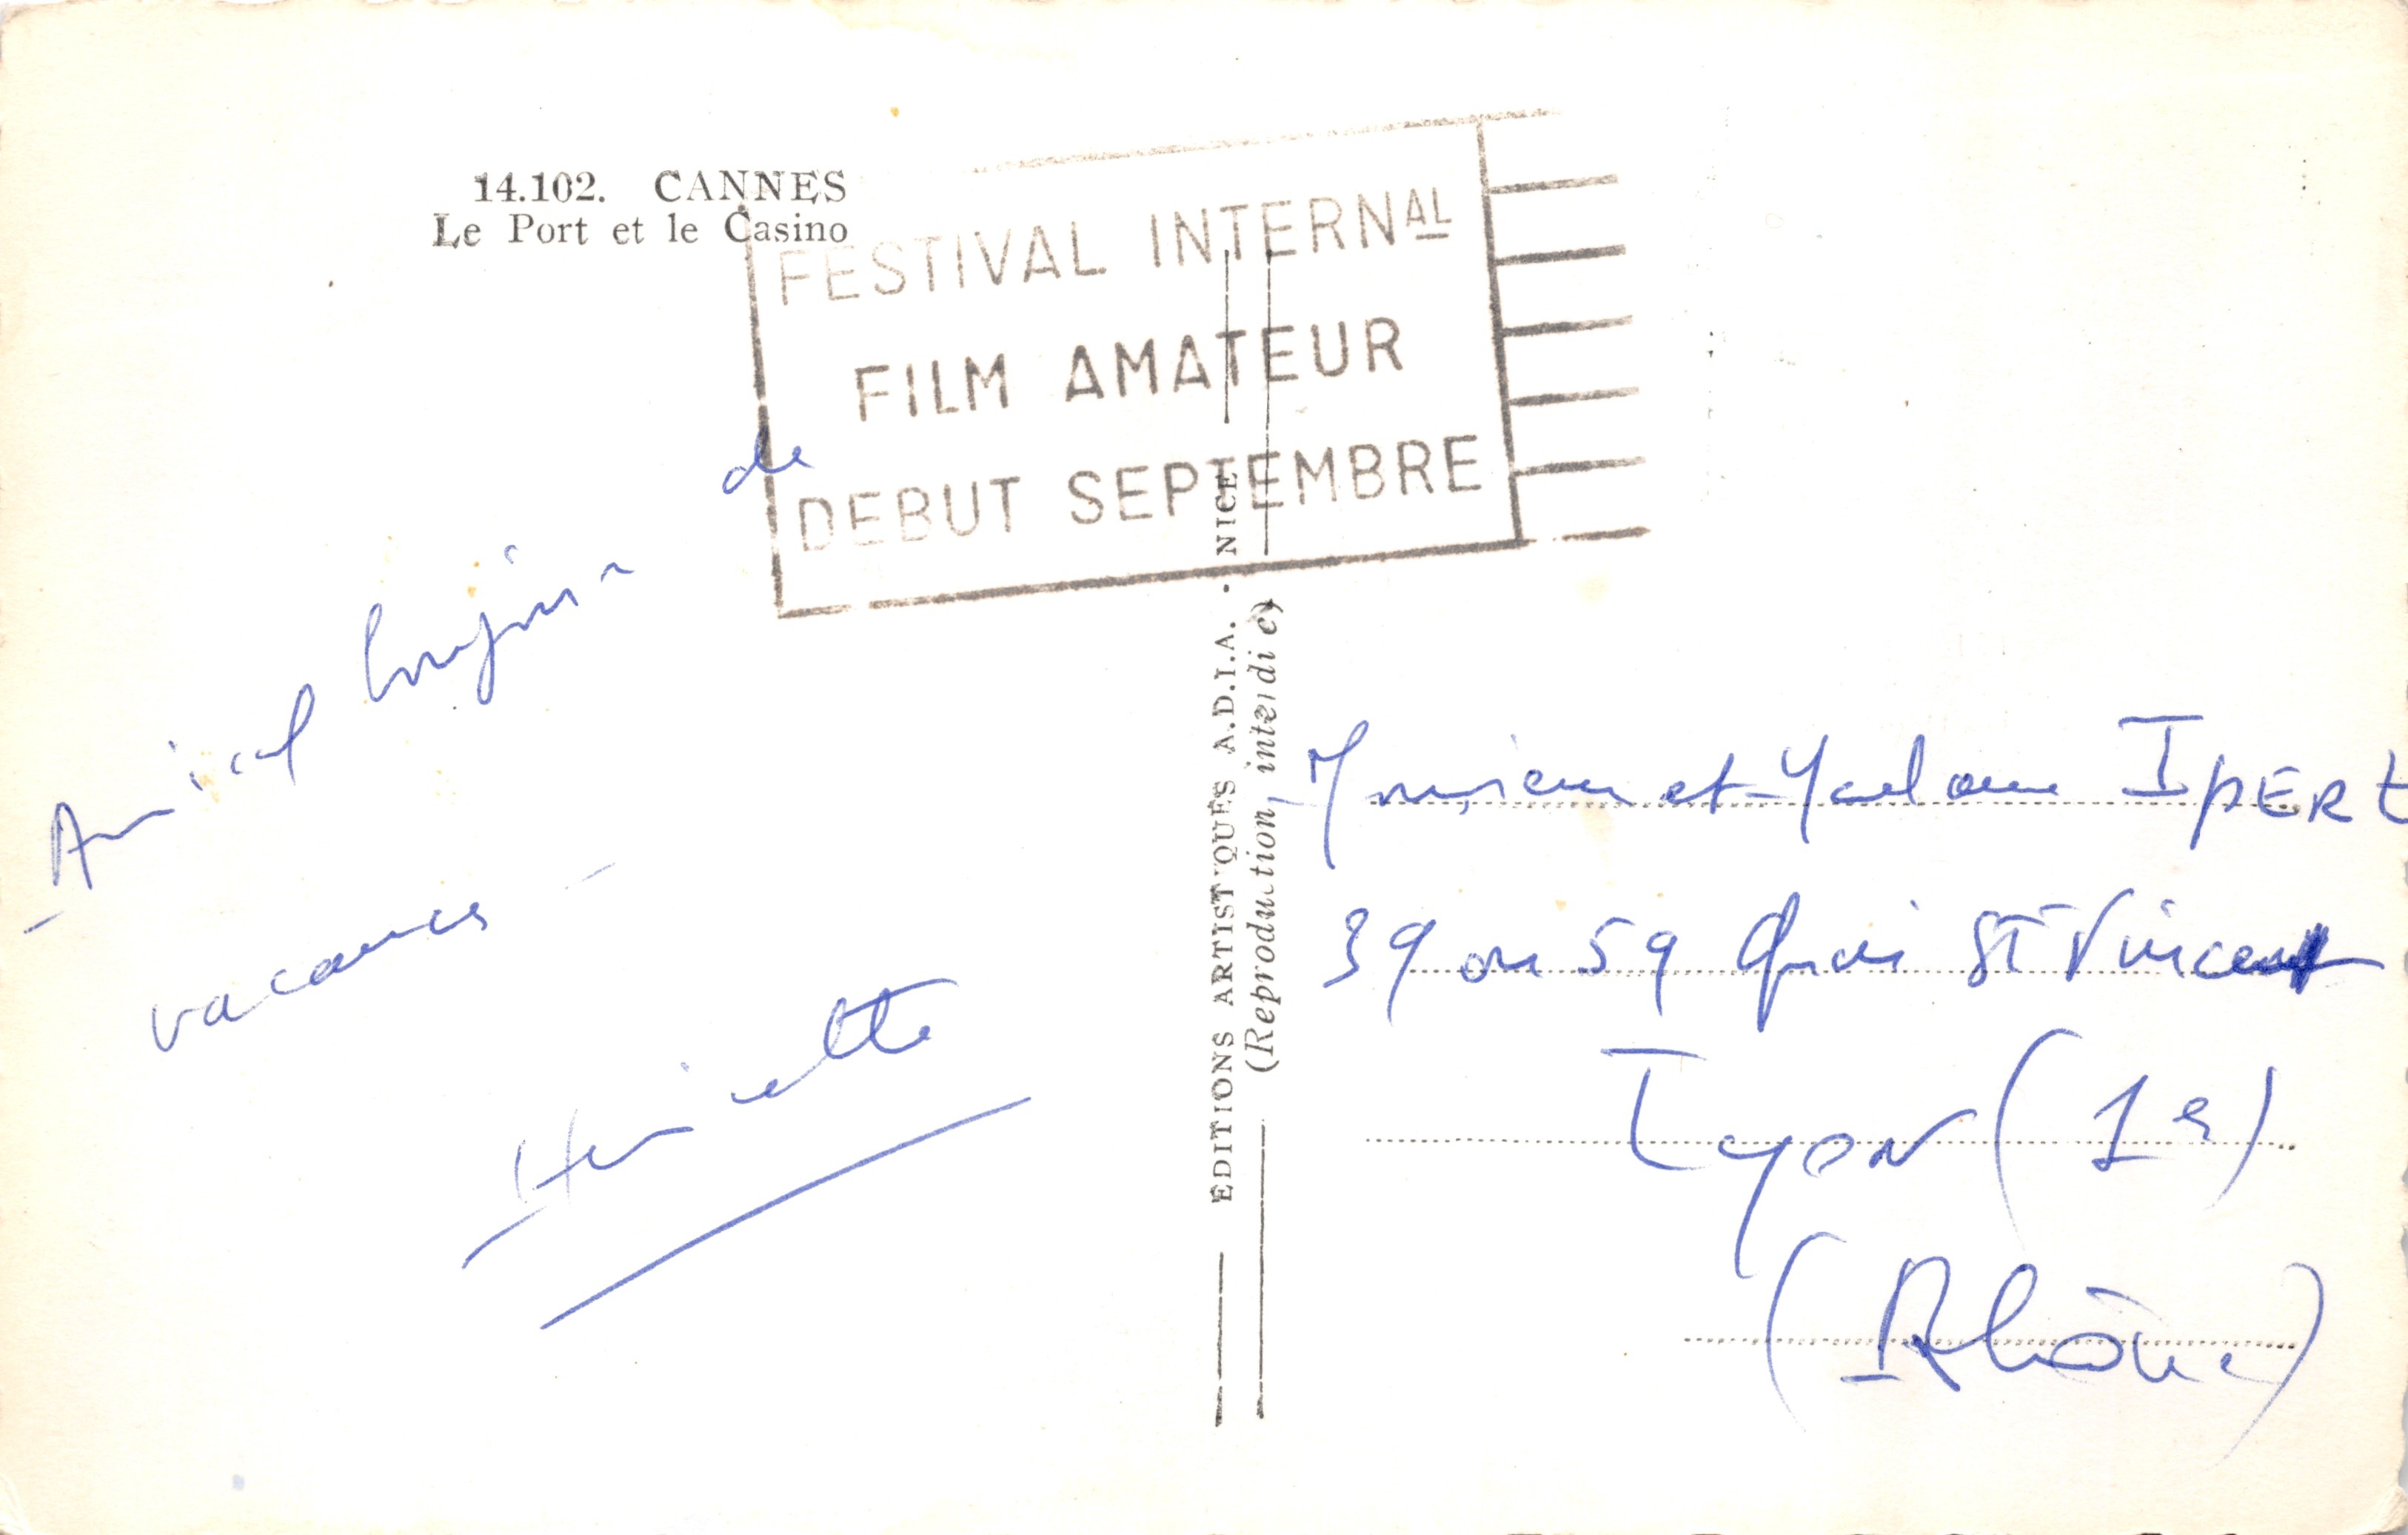 14.102. CANNES
Le Port et le Casino
FESTIVAL INTERNAL
FILM AMATEUR
DEBUT SEPTEMBRE
Amical bonjour de
vacances -
Henriette
EDITIONS ARTISTIQUES A.D.I.A. - NICE
(Reproduction interdite)
Monsieur et Madame IPERt
39 ou 59 Quai St Vincent
Lyon (1e)
(Rhône)